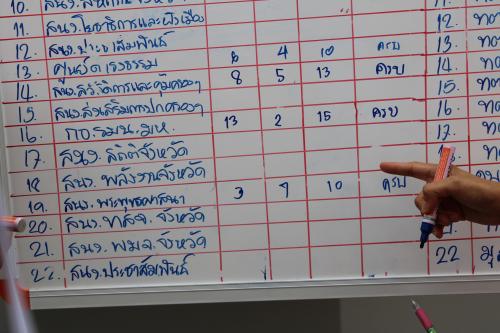 10. สนง.
11. สนง.โยธาธิการและผังเมือง
12. สนง.ประชาสัมพันธ์ 6 4 10 ครบ 12. ทต
13. ศูนย์ดำรงธรรม 8 5 13 ครบ 13. ทต
14. สนง.สวัสดิการและคุ้มครองฯ 14.
15. สนง.ส่งเสริมการปกครองฯ 13 2 15 ครบ 15.
16. กอ.รมน.มห. 16.
17. สนง.สถิติจังหวัด 17.
18. สนง.พลังงานจังหวัด
19. สนง.พระพุทธศาสนา 3 7 10 ครบ 19.
20. สนง.ทสจ.จังหวัด 20.
21. สนง.พมจ.จังหวัด
22. สนง.ประชาสัมพันธ์ 22